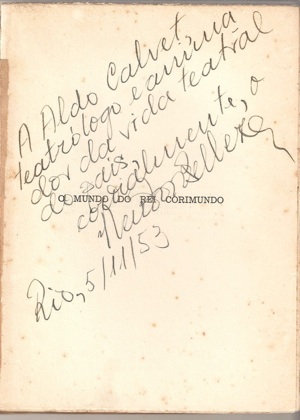 A Aldo Calvet,
teatrólogo e anima
dor da vida teatral
do país,
cordialmente, o
O MUNDO DO REI CORIMUNDO
Rio, 5/11/53